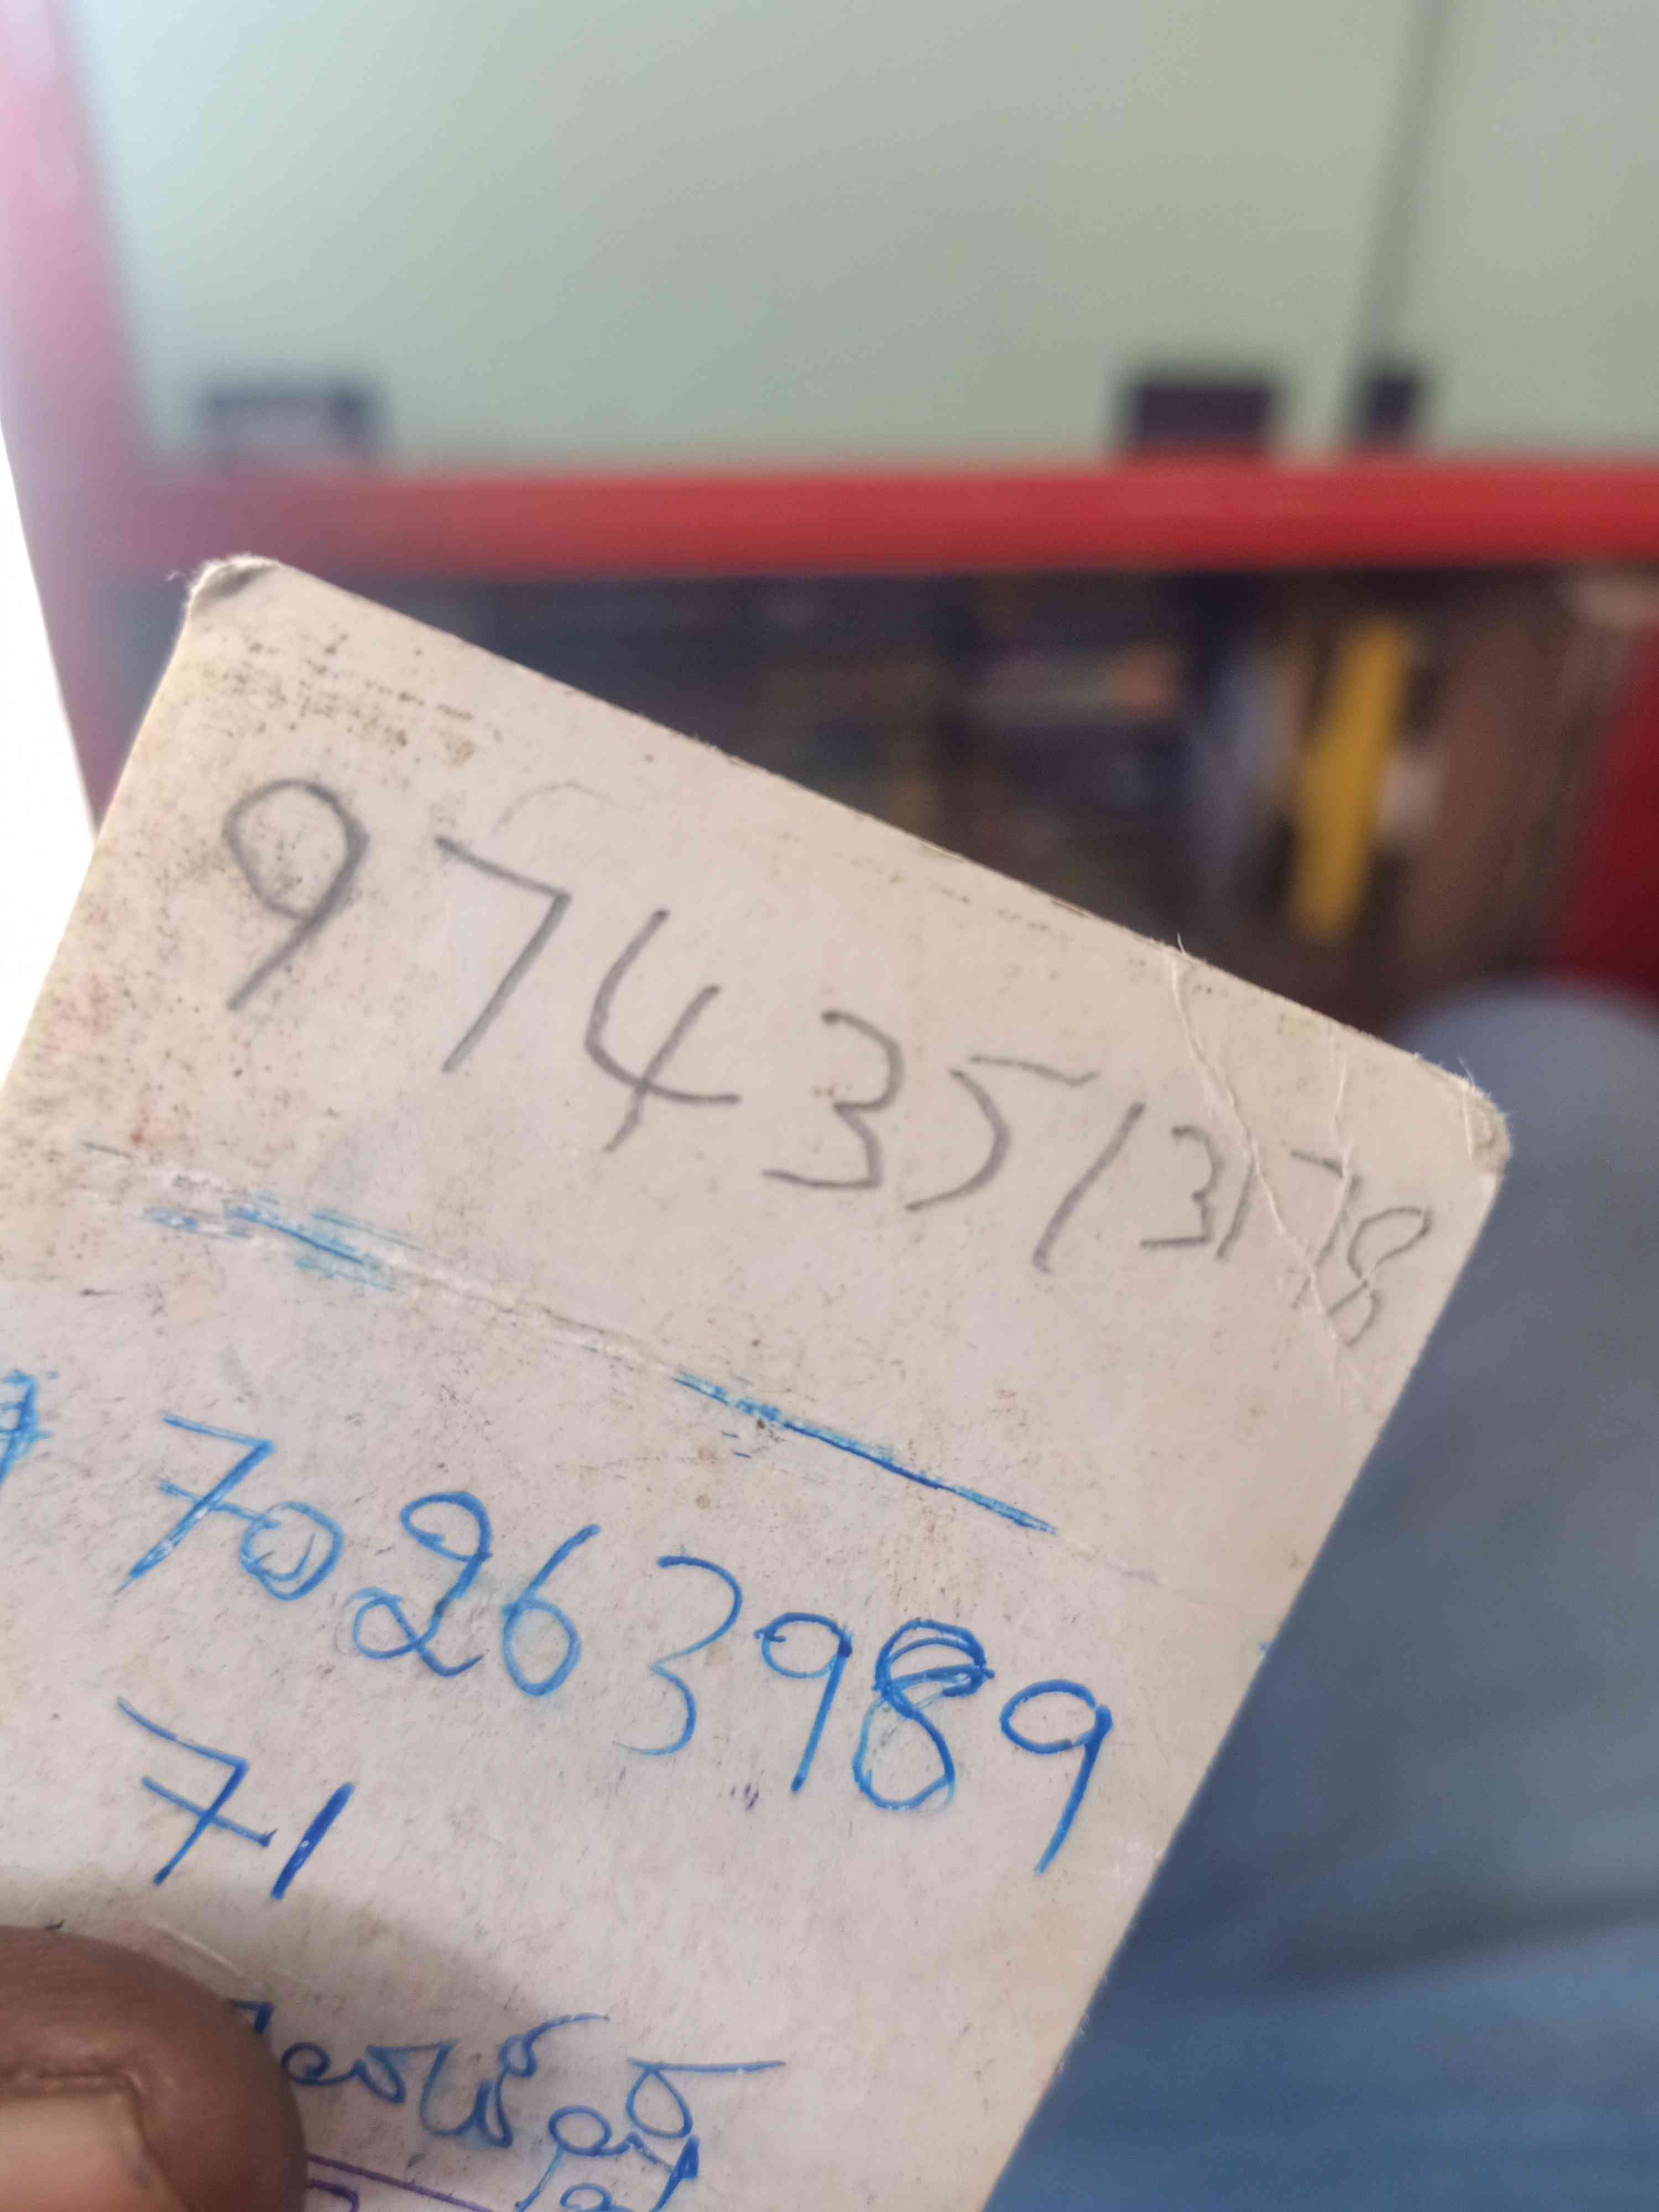 9743513178
70263989
71